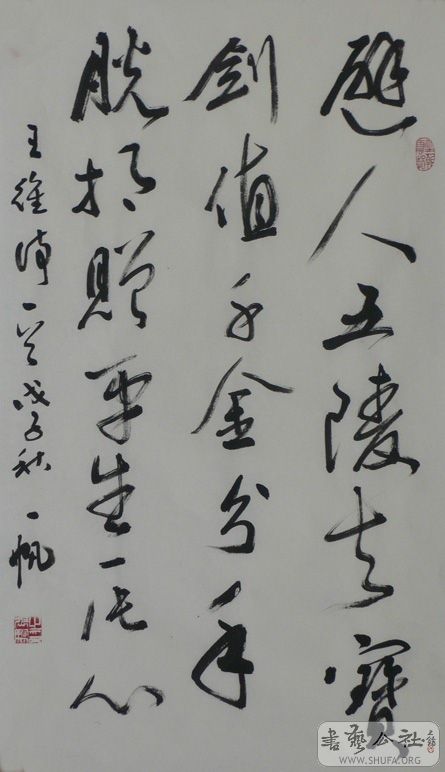 避人五陵去寶
劍值千金分手
脱相贈平生一片心
王維詩一首戊子秋一帆
書藝公社
WWW.SHUFA.ORG